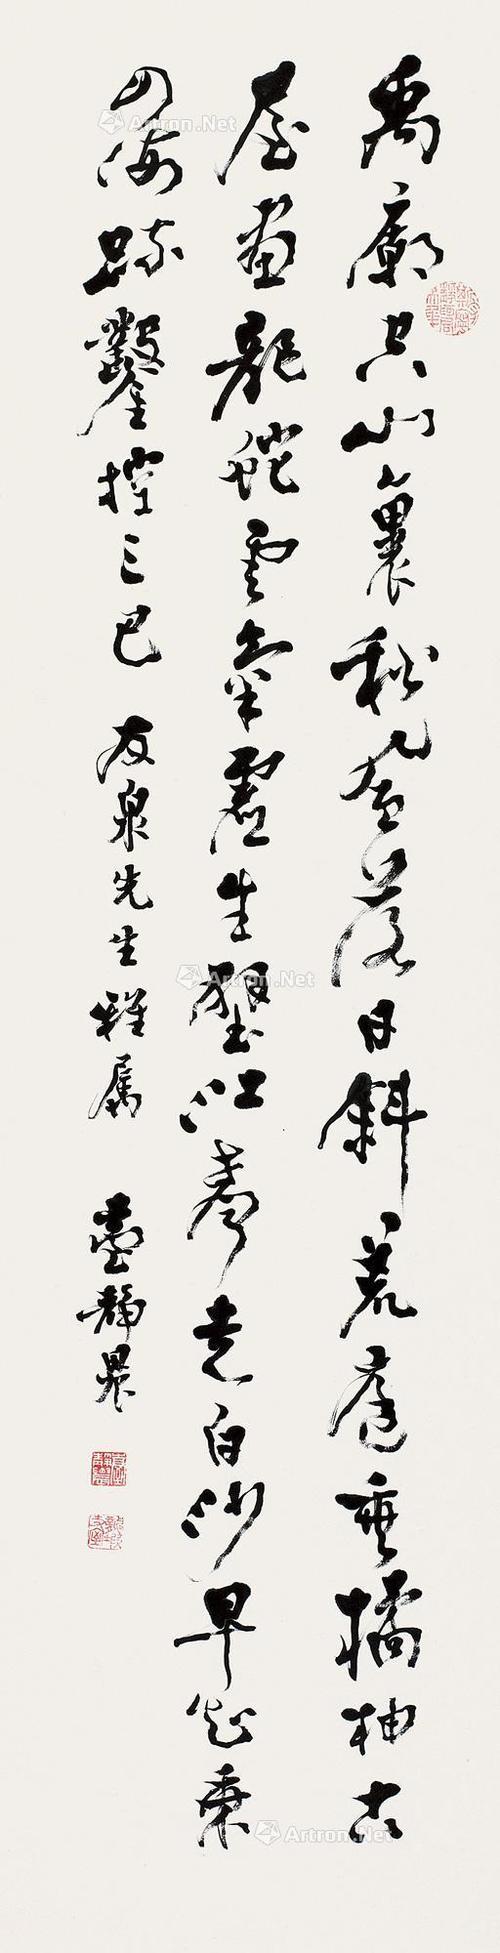 禹廟空山裏秋風落日斜荒庭垂橘柚古
屋畫龍蛇雲氣虛生壁江聲走白沙早知乘
四海疏鑿控三巴 友泉先生雅属 臺靜農
Artron.Net
Artron.Net
Artron.Net